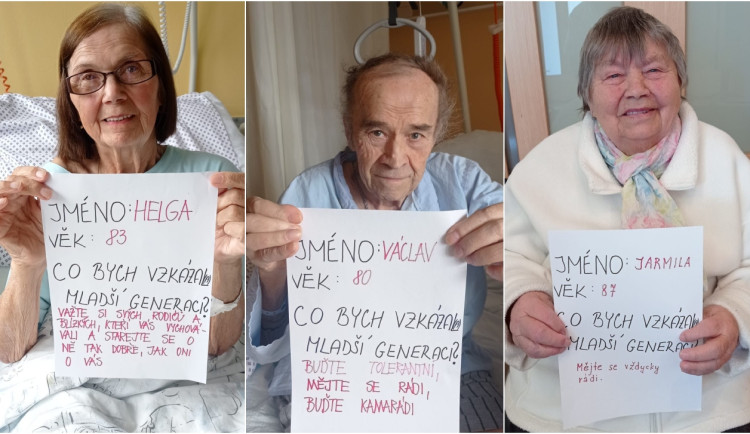 JMÉNO: HELGA
VĚK: 83
CO BYCH VZKÁZAL/A
MLADŠÍ GENERACI?
VAŽTE SI SVÝCH RODIČŮ A
BLÍZKÝCH, KTEŘÍ VÁS VYCHOVÁ-
VALI A STAREJTE SE O
NĚ TAK DOBŘE, JAK ONI
O VÁS
JMÉNO: VÁCLAV
VĚK: 80
CO BYCH VZKÁZAL/A
MLADŠÍ GENERACI?
BUĎTE TOLERANTNÍ,
MĚJTE SE RÁDI,
BUĎTE KAMARÁDI
JMÉNO: JARMILA
VĚK: 87
CO BYCH VZKÁZAL/A
MLADŠÍ GENERACI?
Mějte se vždycky
rádi.